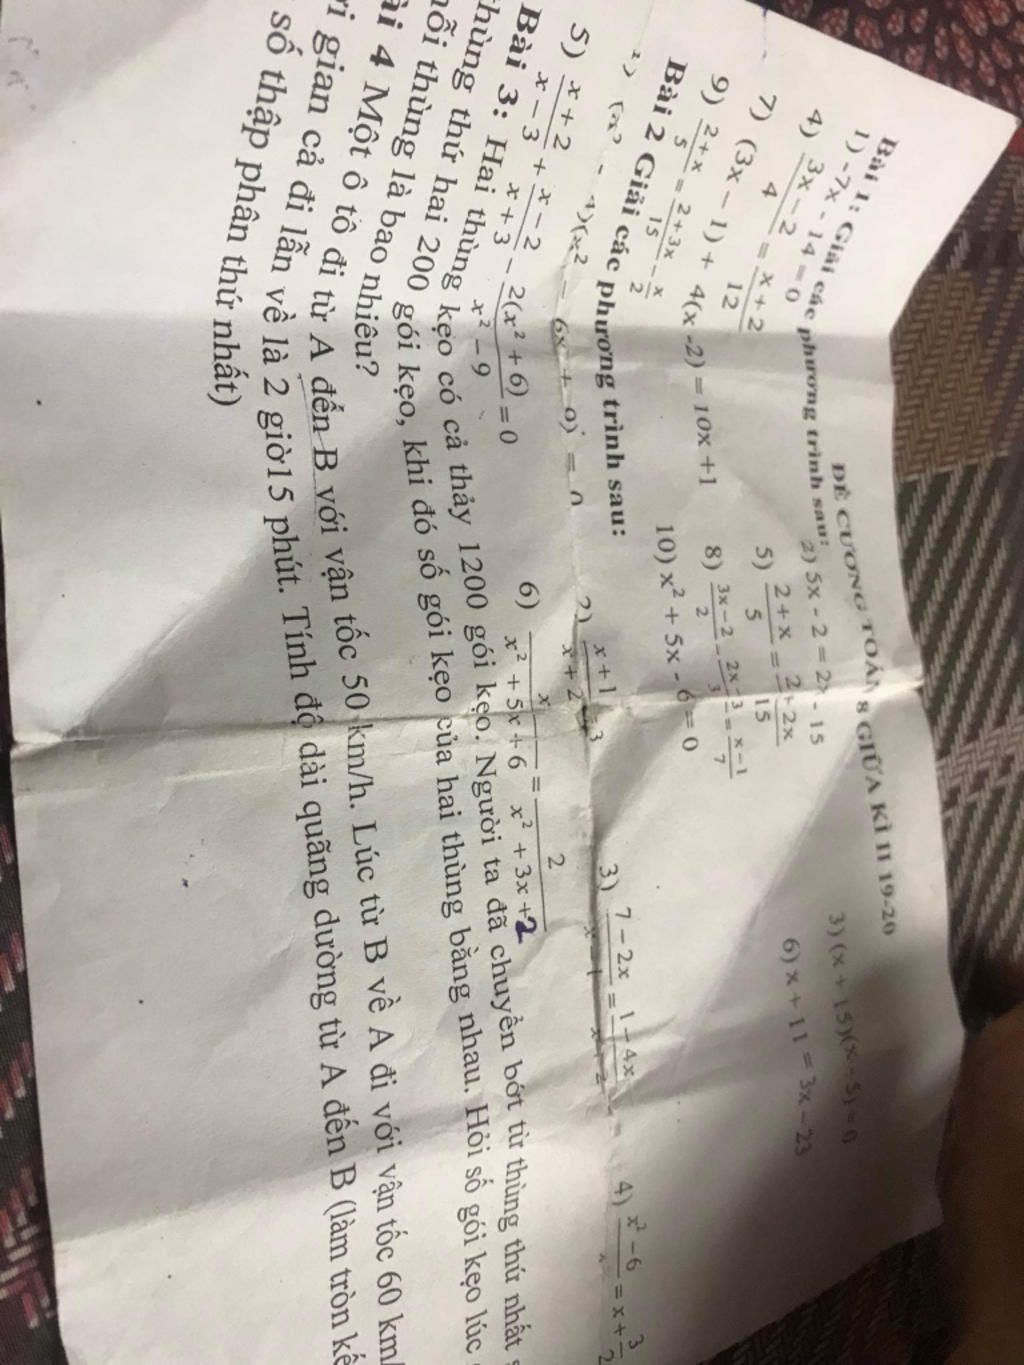 ĐỀ CƯƠNG TOÁN 8 GIỮA KÌ II 19-20
Bài 1: Giải các phương trình sau:
1) -7x - 14 = 0 2) 5x - 2 = 2x - 15 3) (x + 15)(x - 5) = 0
4) \frac{3x - 2}{4} = \frac{x + 2}{12} 5) \frac{2 + x}{5} = \frac{2 + 2x}{15} 6) x + 11 = 3x - 23
7) (3x - 1) + 4(x -2) = 10x +1 8) \frac{3x - 2}{2} - \frac{2x - 3}{3} = \frac{x - 1}{7}
9) \frac{2 + x}{5} = \frac{2 + 3x}{15} - \frac{x}{2} 10) x² + 5x - 6 = 0
Bài 2 Giải các phương trình sau:
)(x² - 6x + 9) = 0 2) \frac{x + 1}{x + 2} = 3 3) 7 - 2x = 1 - 4x 4) x² - 6 = x + \frac{3}{2}
5) \frac{x + 2}{x - 3} + \frac{x - 2}{x + 3} - \frac{2(x² + 6)}{x² - 9} = 0 6) \frac{x}{x² + 5x + 6} = \frac{2}{x² + 3x + 2}
Bài 3: Hai thùng kẹo có cả thảy 1200 gói kẹo. Người ta đã chuyển bớt từ thùng thứ nhất
thùng thứ hai 200 gói kẹo, khi đó số gói kẹo của hai thùng bằng nhau. Hỏi số gói kẹo lúc
mỗi thùng là bao nhiêu?
ài 4 Một ô tô đi từ A đến B với vận tốc 50 km/h. Lúc từ B về A đi với vận tốc 60 km/
gian cả đi lẫn về là 2 giờ15 phút. Tính độ dài quãng dường từ A đến B (làm tròn kế
số thập phân thứ nhất)